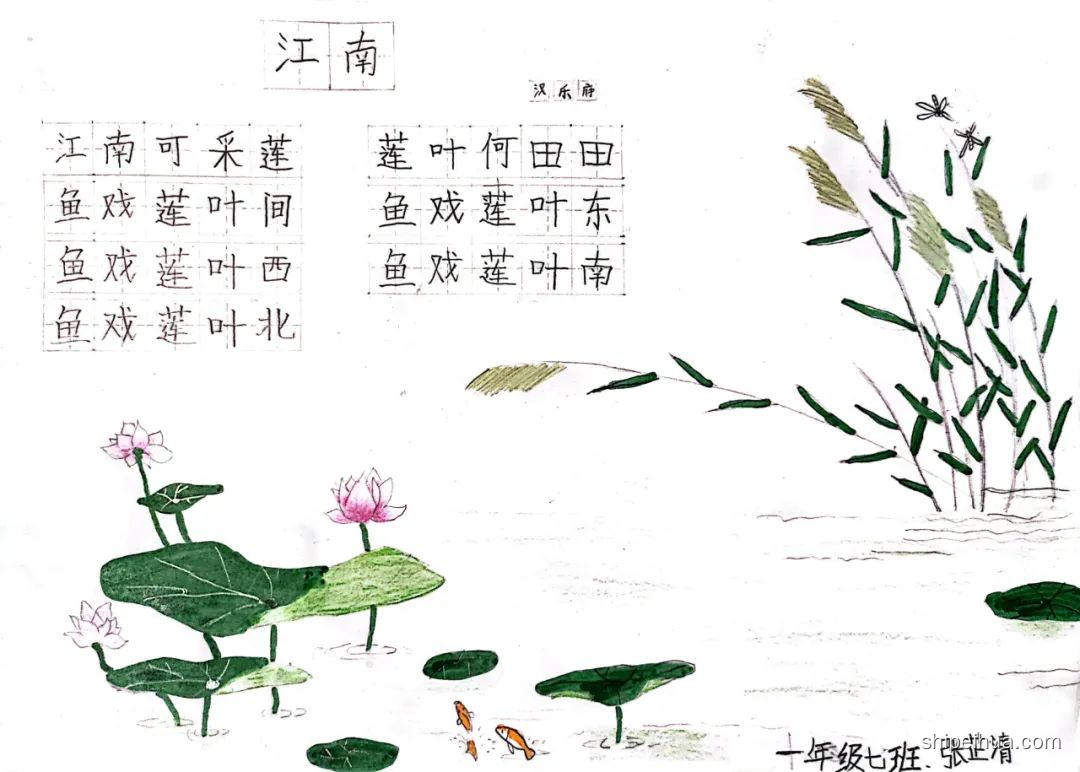 江南
汉乐府
江南可采莲 莲叶何田田
鱼戏莲叶间 鱼戏莲叶东
鱼戏莲叶西 鱼戏莲叶南
鱼戏莲叶北
一年级七班.张芷清
shipeihua.com